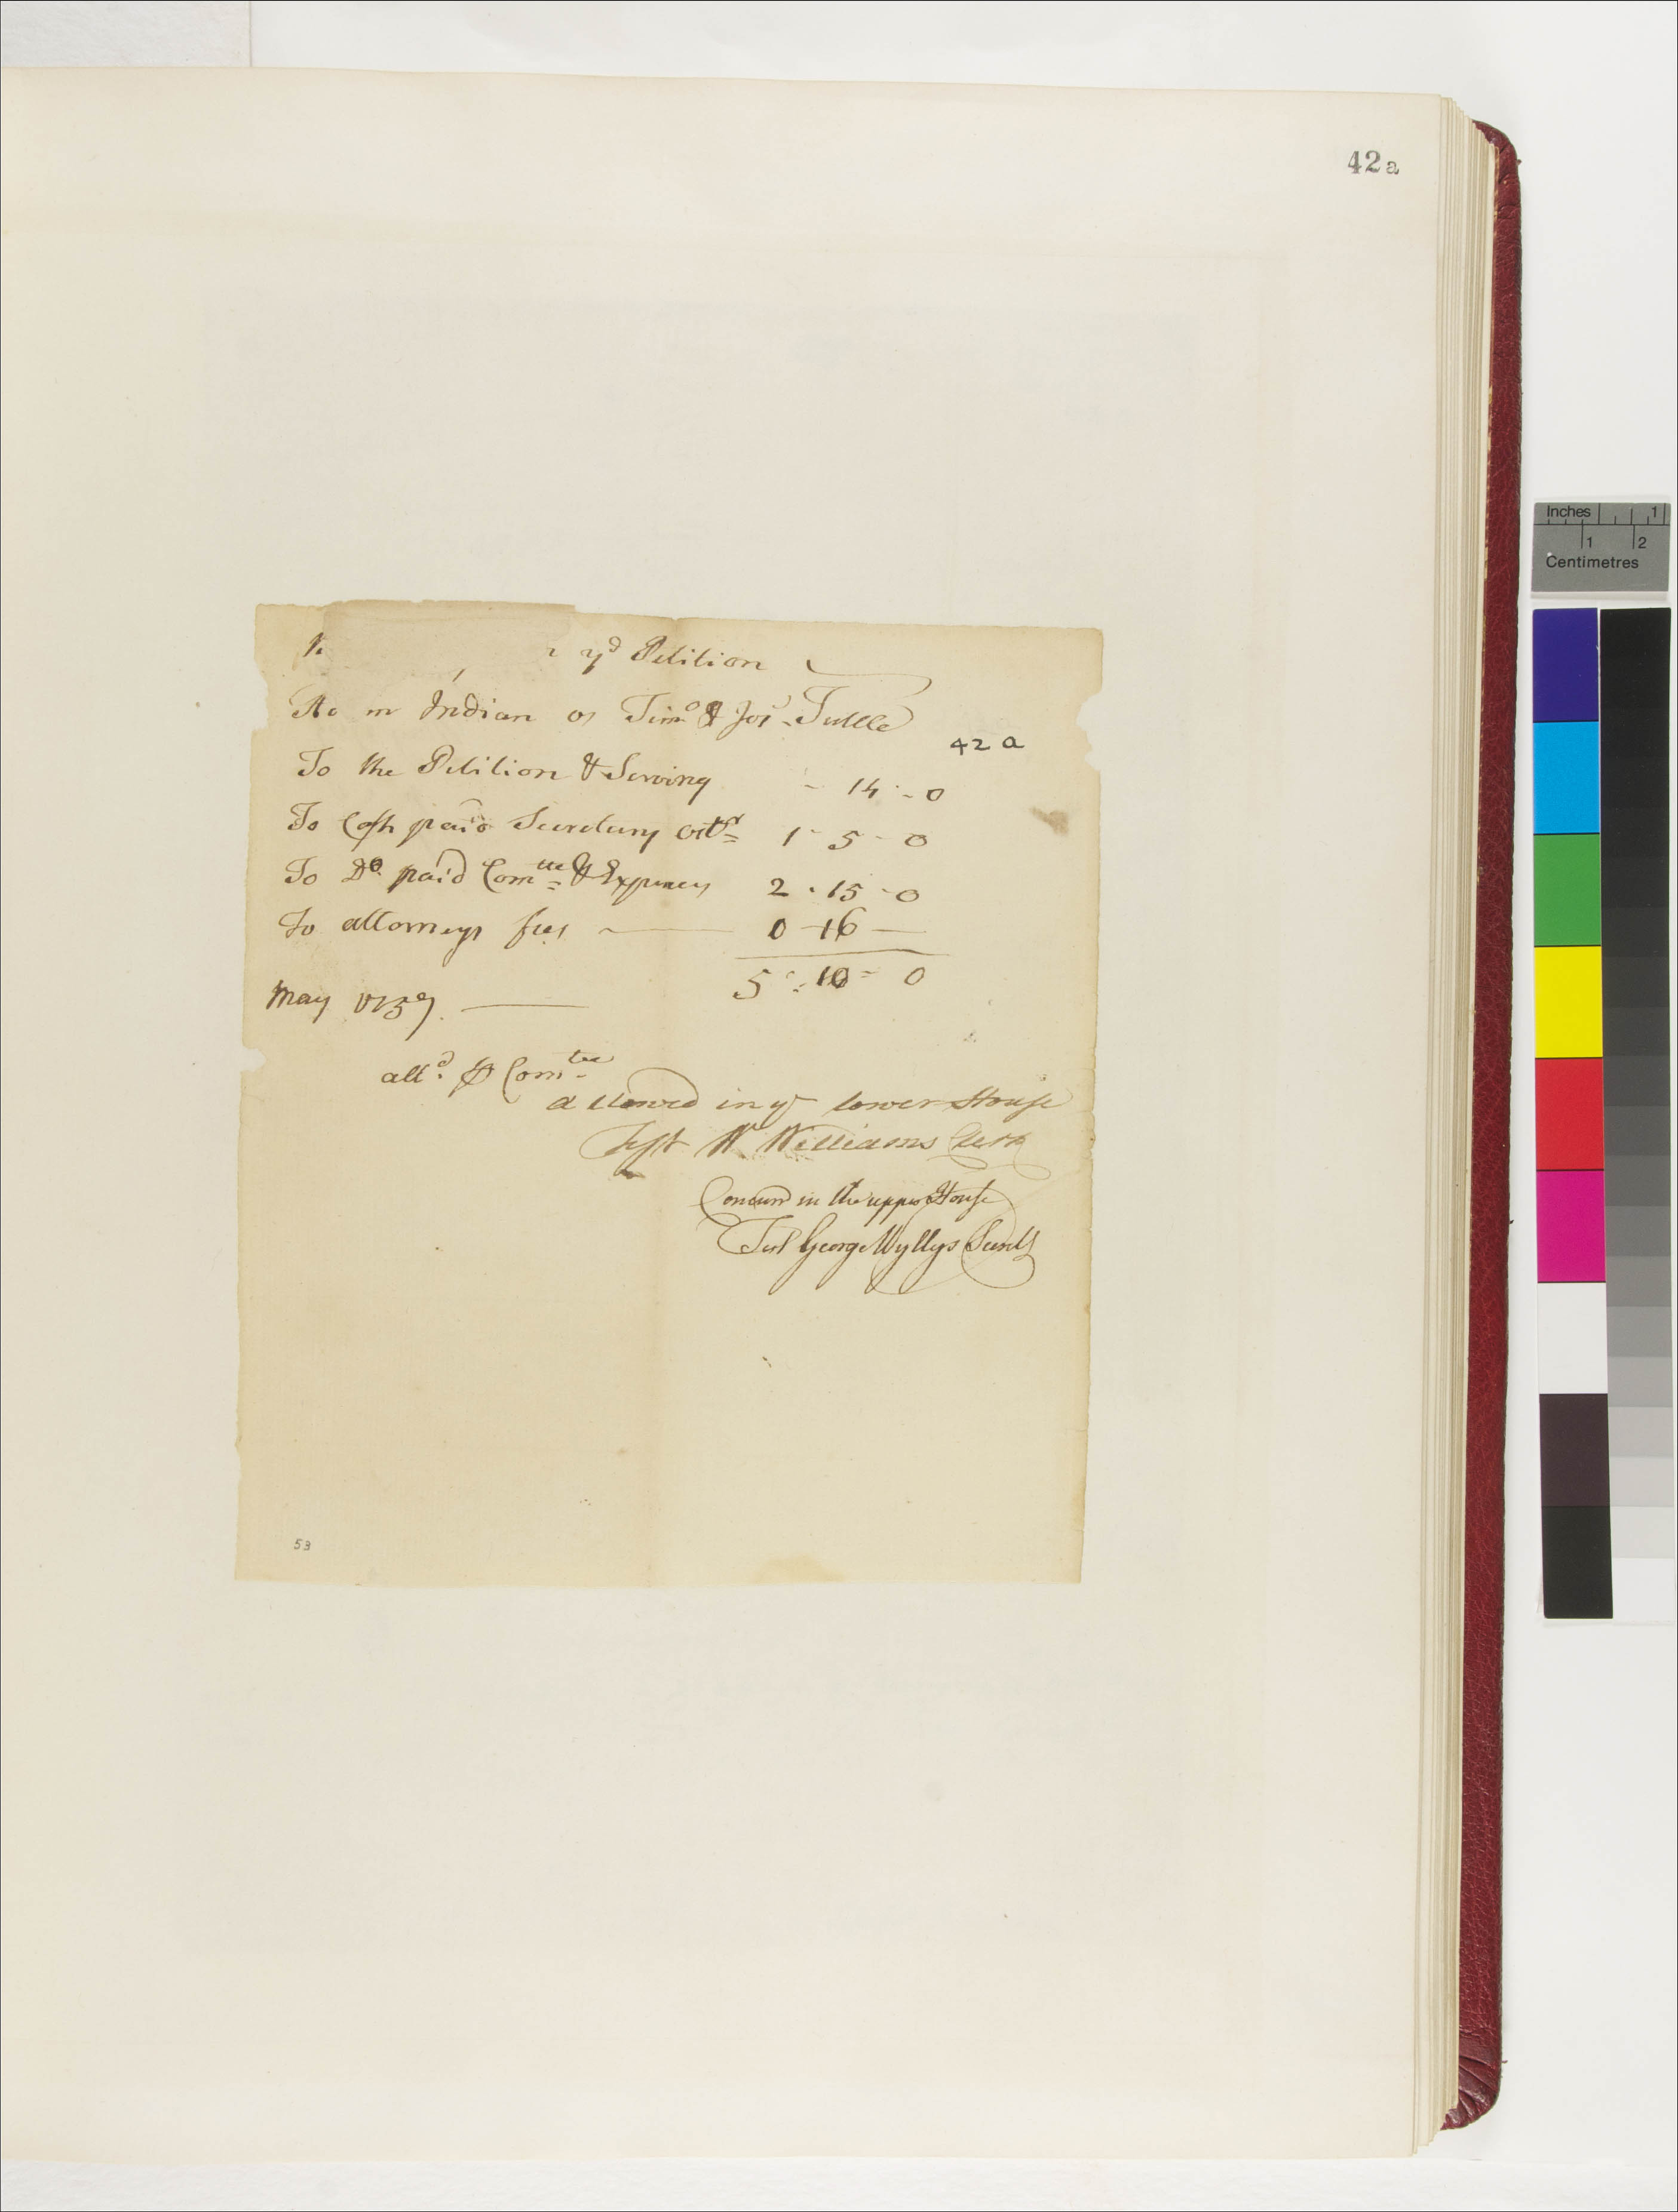 42a
yᵈ Petition
Indian vs Timº & Jos Tuttle
42 a
To the Petition & Serving - 14 - 0
To Cash paid Secretary 1 - 5 - 0
To Dº paid Comᵗᵗᵉᵉ & Expences 2 - 15 - 0
To attorneys fees — 0 - 16 —
5 : 10 = 0
May 1759. —
allᵈ ⅌ Comᵗᵉᵉ
allowed in yᵉ lower House
Test W Williams Clerk
Concurrd in the upper House
Test George Wyllys Secretʸ
53
Inches 1
1 2
Centimetres